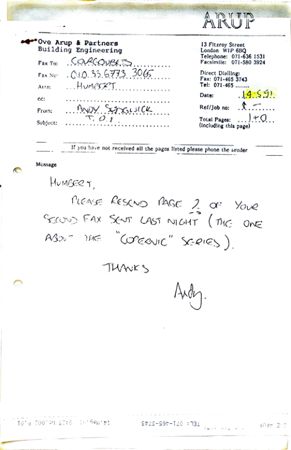 ARUP
Ove Arup & Partners
Building Engineering
13 Fitzroy Street
London W1P 6BQ
Telephone: 071-636 1531
Facsimile: 071-580 3924
Fax To:
Fax No: 010.33.6773.3065
Attn: HUMBERT
cc:
From: ANDY SEDGWICK
Subject: T.D.I
Direct Dialling:
Fax: 071-465 3743
Tel: 071-465
Date: 14.5.91.
Ref/Job no:
Total Pages: 1+0
(including this page)
If you have not received all the pages listed please phone the sender
Message
HUMBERT,
PLEASE RESEND PAGE 2 OF YOUR
SECOND FAX SENT LAST NIGHT (THE ONE
ABOUT THE "COPERNIC" SERIES).
THANKS
Andy.
TEL: 071-465-3743